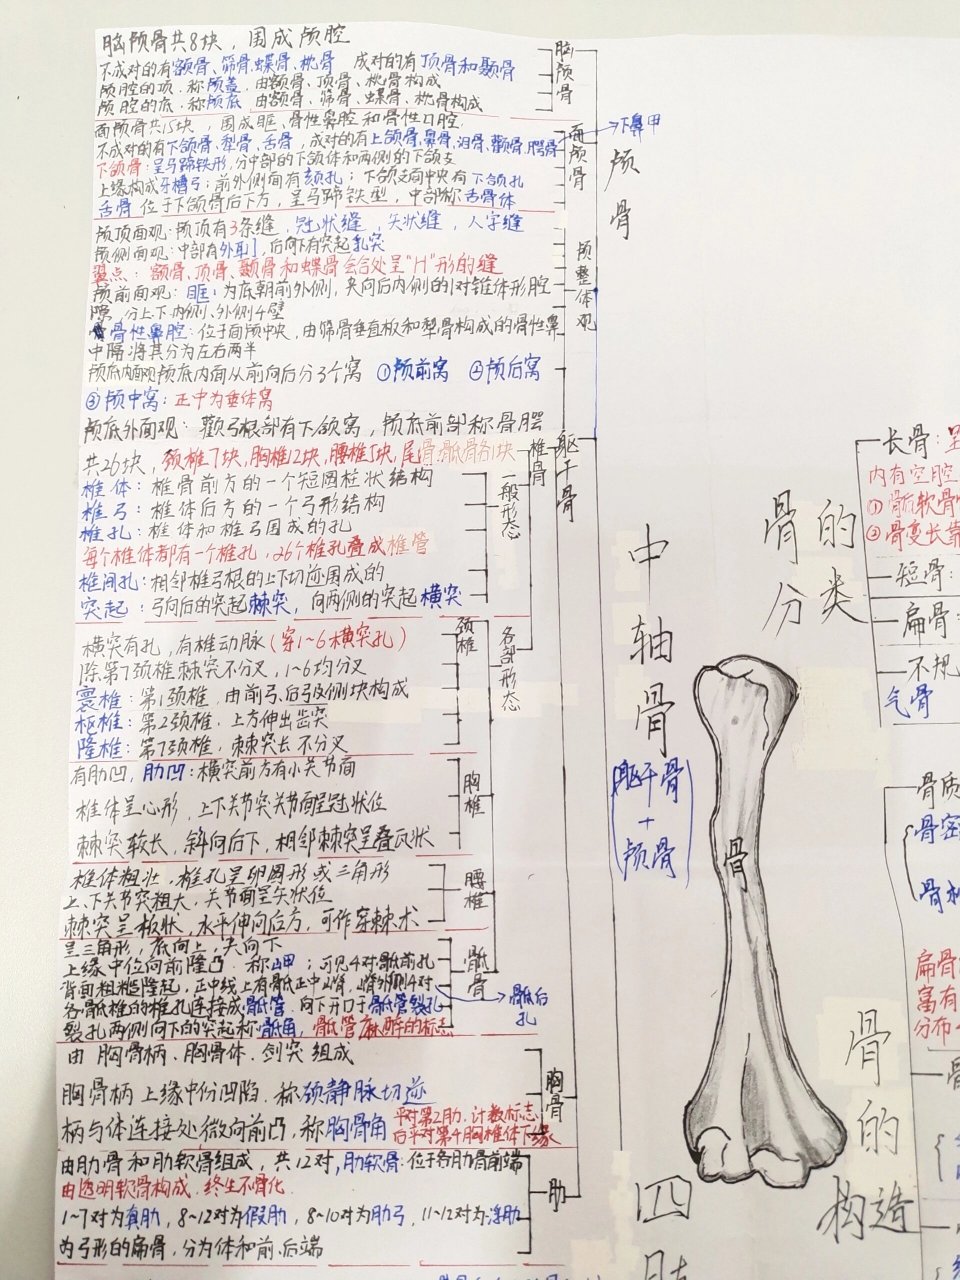 脑颅骨共8块，围成颅腔
不成对的有额骨、筛骨、蝶骨、枕骨 成对的有顶骨和颞骨
颅腔的顶，称颅盖，由额骨、顶骨、枕骨构成
颅腔的底，称颅底，由额骨、筛骨、蝶骨、枕骨构成
脑颅骨
面颅骨共15块，围成眶、骨性鼻腔和骨性口腔
不成对的有下颌骨、犁骨、舌骨，成对的有上颌骨、鼻骨、泪骨、颧骨、腭骨
下鼻甲
下颌骨：呈马蹄铁形，分中部的下颌体和两侧的下颌支
上缘构成牙槽弓；前外侧面有颏孔；下颌支面中央有下颌孔
舌骨 位于下颌骨后下方，呈马蹄铁型，中部称舌骨体
面颅骨
颅骨
颅顶面观：颅顶有3条缝，冠状缝，矢状缝，人字缝
颅侧面观：中部有外耳门，后向下有突起乳突
翼点：额骨、顶骨、颞骨和蝶骨会合处呈"H"形的缝
颅前面观：眶：为底朝前外侧，尖向后内侧的1对锥体形腔
隙，分上下内侧、外侧4壁
骨性鼻腔：位于面颅中央，由筛骨垂直板和犁骨构成的骨性鼻
中隔将其分为左右两半
颅底内面观颅底内面从前向后分3个窝 ①颅前窝 ②颅后窝
③颅中窝：正中为垂体窝
颅底外面观：颧弓根部有下颌窝，颅底前部称骨腭
颅整体观
共26块，颈椎7块，胸椎12块，腰椎5块，尾骨骶骨各1块
椎骨
躯干骨
椎体：椎骨前方的一个短圆柱状结构
椎弓：椎体后方的一个弓形结构
椎孔：椎体和椎弓围成的孔
每个椎体都有一个椎孔，26个椎孔叠成椎管
椎间孔：相邻椎弓根的上下切迹围成的
突起：弓向后的突起棘突，向两侧的突起横突
一般形态
横突有孔，有椎动脉（穿1~6横突孔）
除第7颈椎棘突不分叉，1~6均分叉
寰椎：第1颈椎，由前弓后弓及侧块构成
枢椎：第2颈椎，上方伸出齿突
隆椎：第7颈椎，棘突长不分叉
颈椎
各部形态
有肋凹，肋凹：横突前方有小关节面
椎体呈心形，上下关节突关节面呈冠状位
棘突较长，斜向后下，相邻棘突呈叠瓦状
胸椎
椎体粗壮，椎孔呈卵圆形或三角形
上、下关节突粗大，关节面呈矢状位
棘突呈板状，水平伸向后方，可作穿棘术
腰椎
呈三角形，底向上，尖向下
上缘中位向前隆凸，称岬；可见4对骶前孔
背面粗糙隆起，正中线上有骶正中嵴，嵴外侧4对
骶后孔
各骶椎的椎孔连接成骶管，向下开口于骶管裂孔
裂孔两侧向下的突起称骶角，骶管麻醉的标志
骶骨
由胸骨柄、胸骨体、剑突组成
胸骨柄上缘中份凹陷，称颈静脉切迹
柄与体连接处微向前凸，称胸骨角
平对第2肋，计数标志
后平对第4胸椎体下缘
胸骨
由肋骨和肋软骨组成，共12对，肋软骨：位于各肋骨前端
由透明软骨构成，终生不骨化
1~7对为真肋，8~12对为假肋，8~10对为肋弓，11~12对为浮肋
为弓形的扁骨，分为体和前、后端
肋
中轴骨
躯干骨
+
颅骨
四
骨
骨的分类
长骨：
内有空腔
①
②骨变长靠
短骨：
扁骨
不规
气骨
骨的构造
骨质
骨密
扁骨
富有
分布